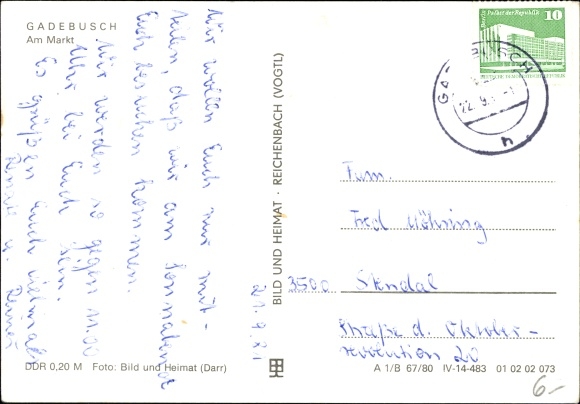 GADEBUSCH
Am Markt
21.9.81
Wir wollen Euch nur mit-
teilen, daß wir am Sonnabend
Euch besuchen kommen.
Wir werden so gegen 11.00
Uhr bei Euch sein.
Es grüßen Euch vielmals
u.
BILD UND HEIMAT · REICHENBACH (VOGTL)
Berlin, Palast der Republik
10
DEUTSCHE DEMOKRATISCHE REPUBLIK
GADEBUSCH
22.9.
Fam.
Fred Möhring
3500 Stendal
Straße d. Oktober-
revolution 20
DDR 0,20 M Foto: Bild und Heimat (Darr)
A 1/B 67/80 IV-14-483 01 02 02 073
6,-